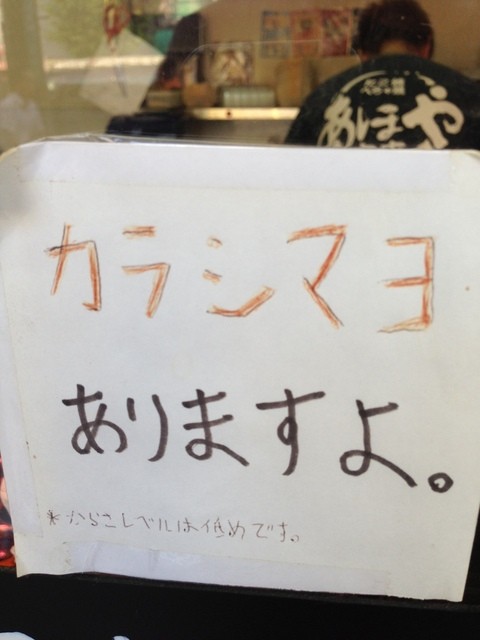 あほや
カラシマヨ
ありますよ。
*からさレベルは低めです。